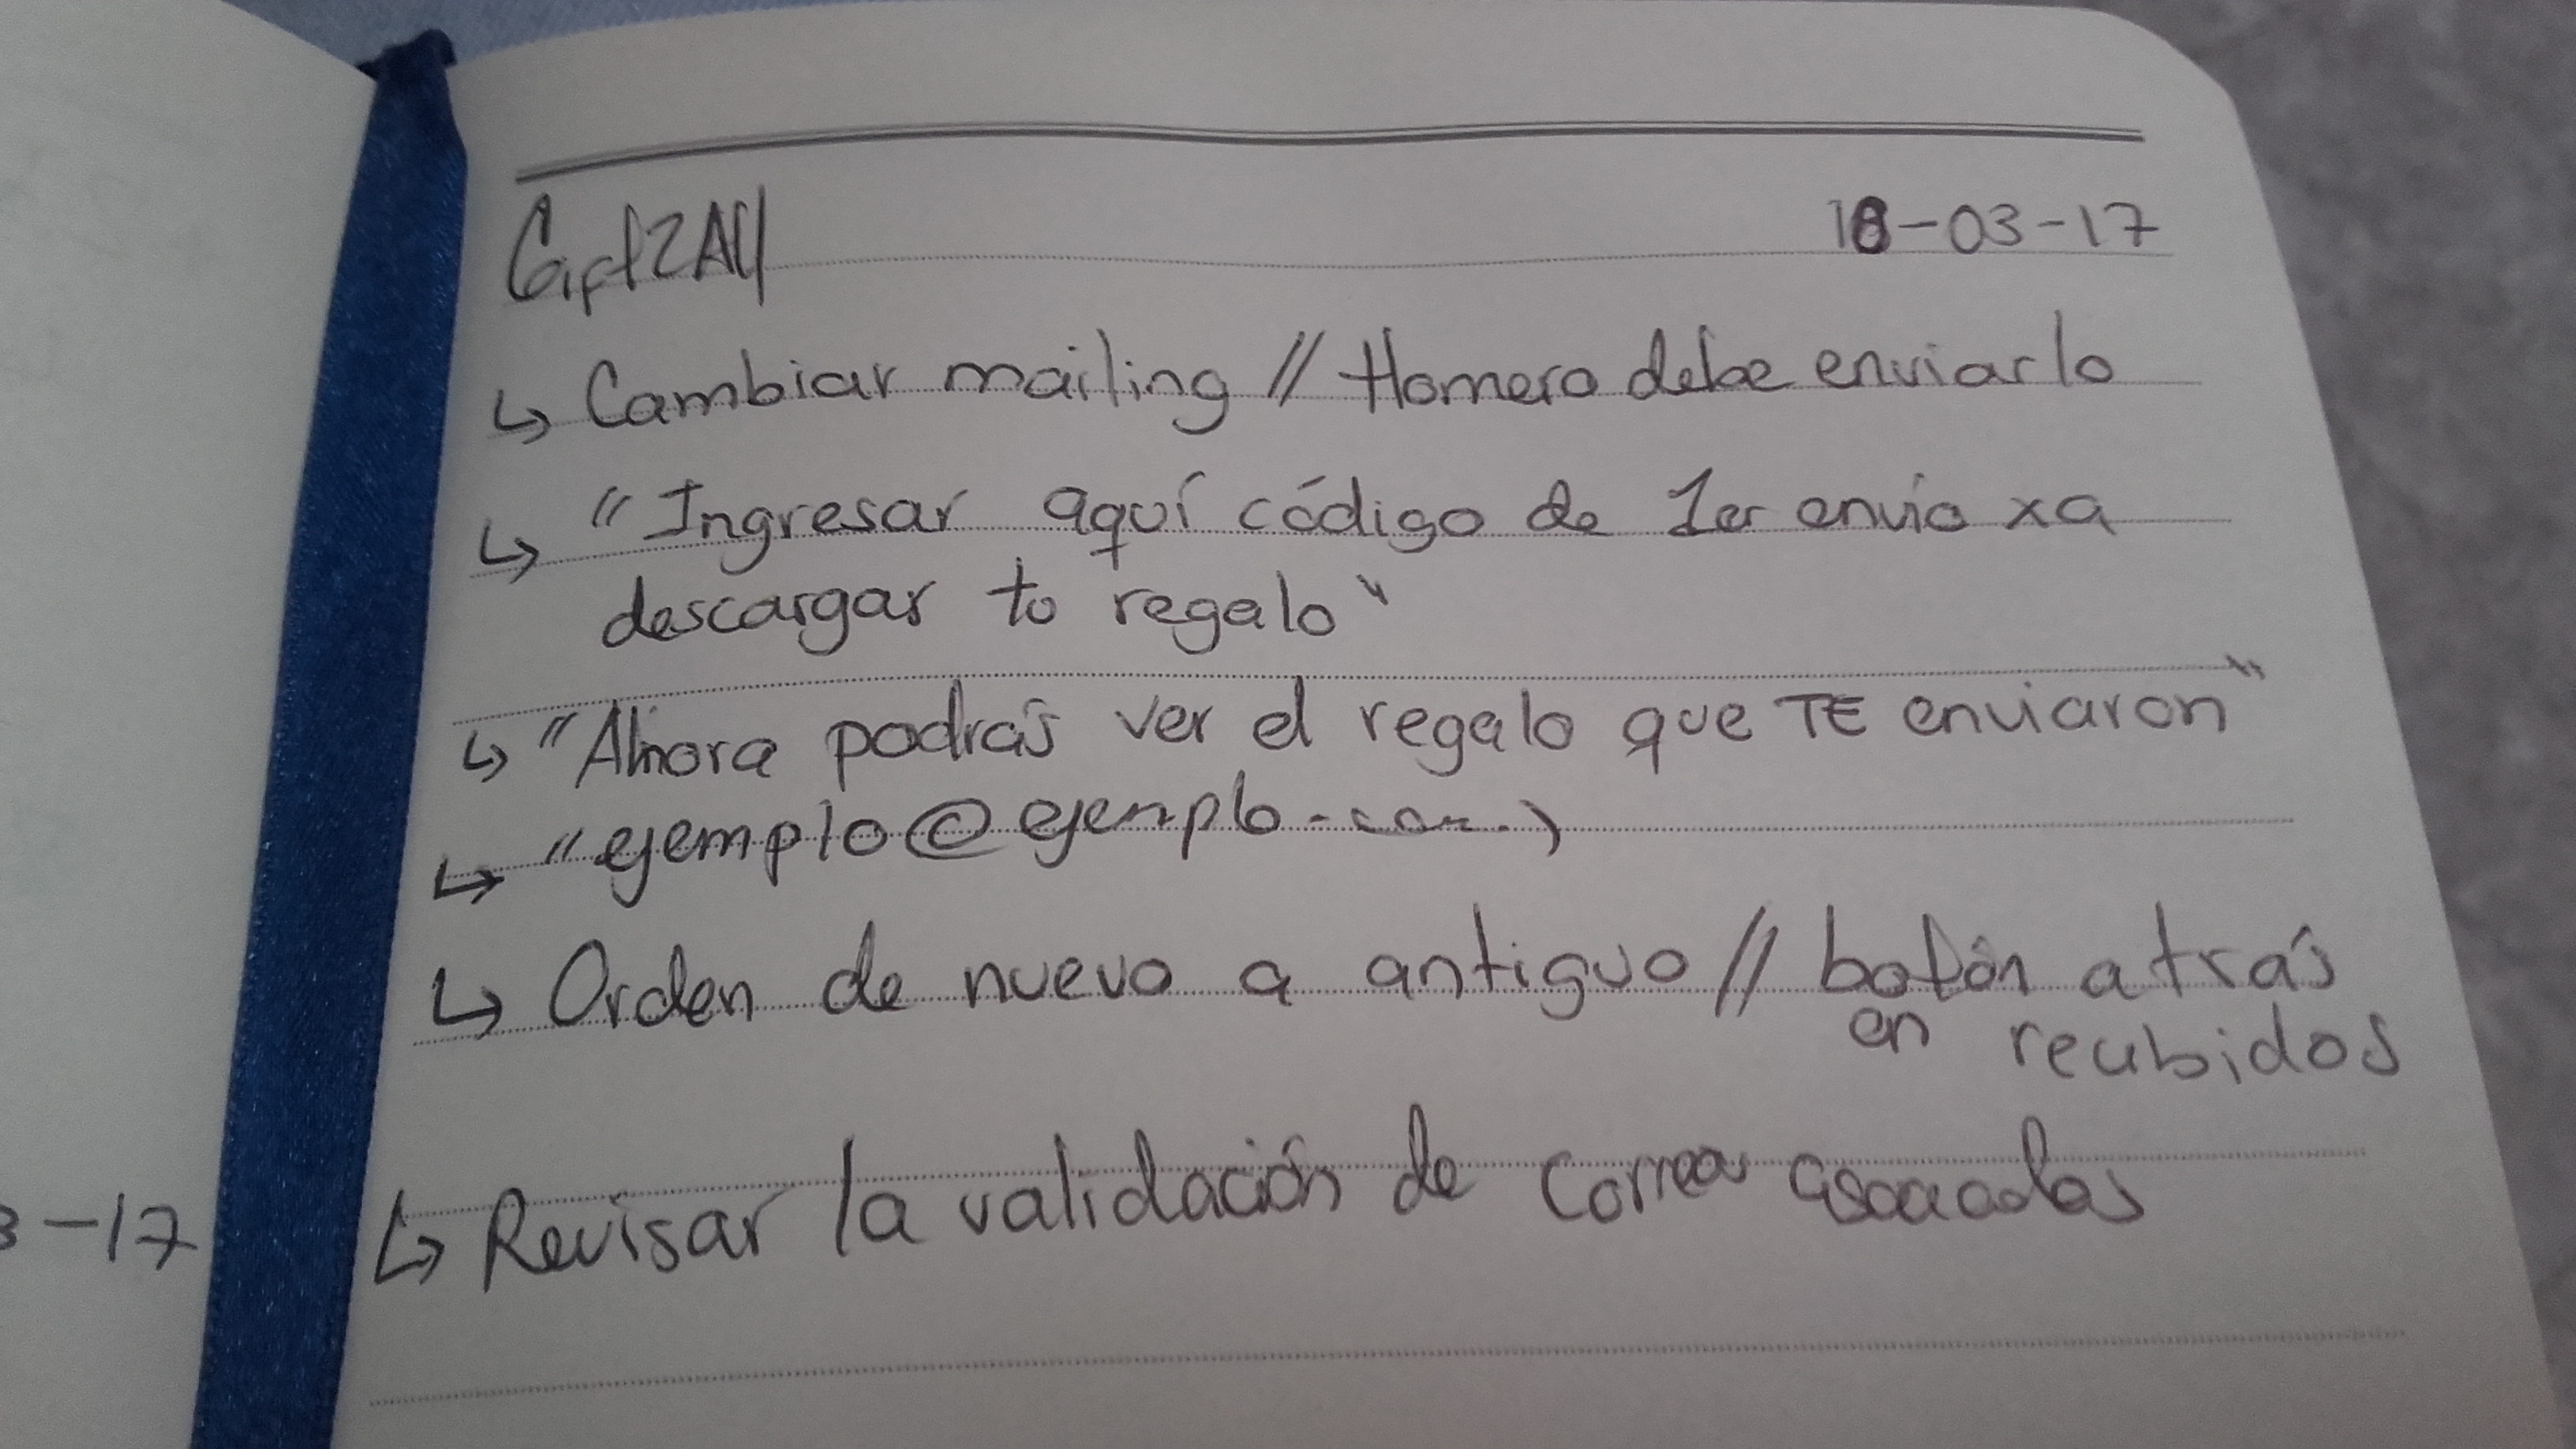 Gift2All 18-03-17
↳ Cambiar mailing // Homero debe enviarlo
↳ "Ingresar aquí código de 1er envío xa
descargar tu regalo"
↳ "Ahora podrás ver el regalo que TE enviaron"
↳ "ejemplo@ejemplo.com.)
↳ Orden de nuevo a antiguo // botón atrás
en recibidos
3-17
↳ Revisar la validación de correos asociados